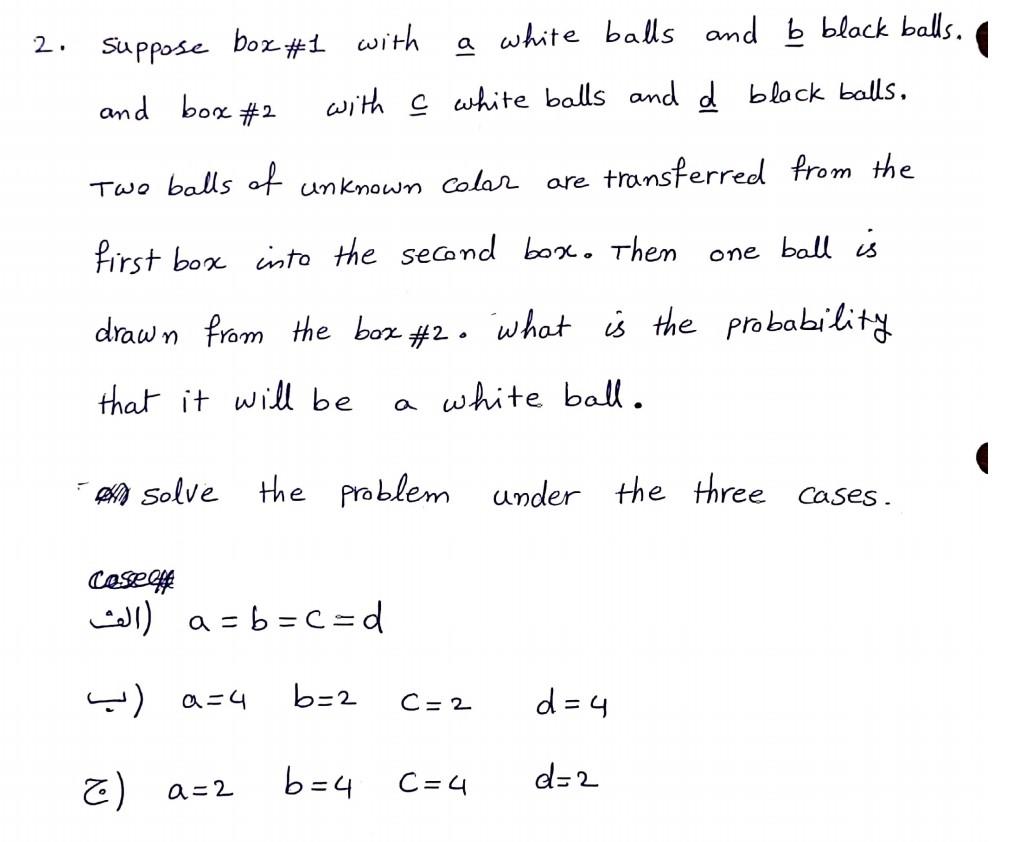 2. Suppose box #1 with a white balls and b black balls.
and box #2 with c white balls and d black balls.
Two balls of unknown color are transferred from the
first box into the second box. Then one ball is
drawn from the box #2. what is the probability
that it will be a white ball.
- solve the problem under the three cases.
الف) a = b = c = d
ب) a=4 b=2 c=2 d=4
ج) a=2 b=4 c=4 d=2